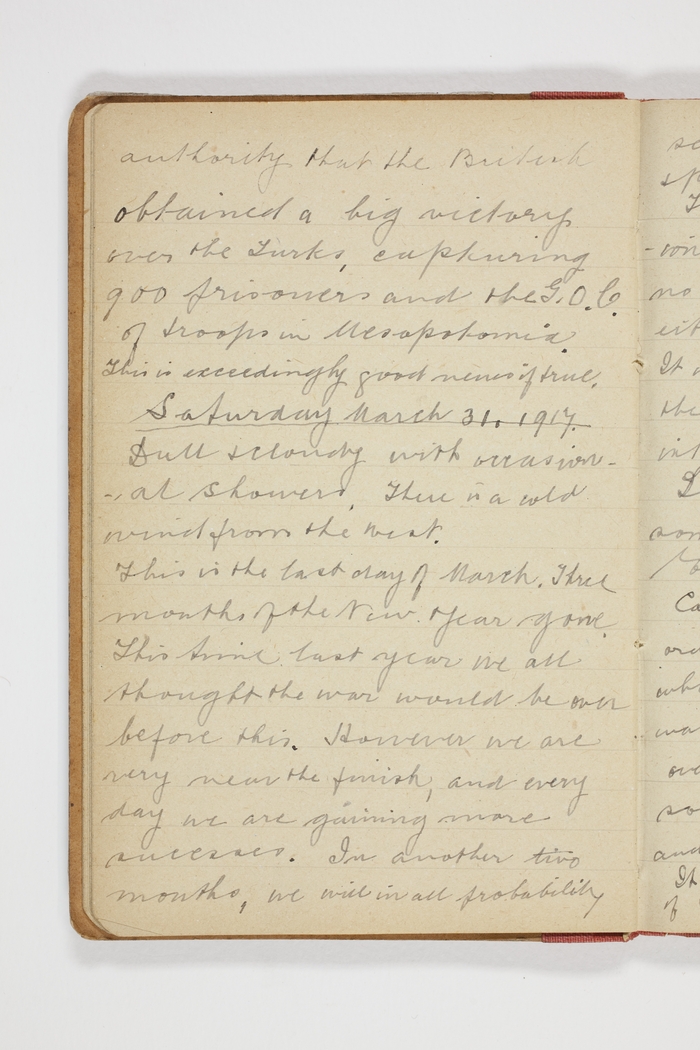 authority that the British
obtained a big victory
over the Turks, capturing
900 prisoners and the G.O.C.
of troops in Mesopotomia.
This is exceedingly good news if true.
Saturday March 31. 1917.
Dull & cloudy with occasion-
-al showers. There is a cold
wind from the west.
This is the last day of March. Three
months of the New Year gone.
This time last year we all
thought the war would be over
before this. However we are
very near the finish, and every
day we are gaining more
successes. In another two
months, we will in all probability